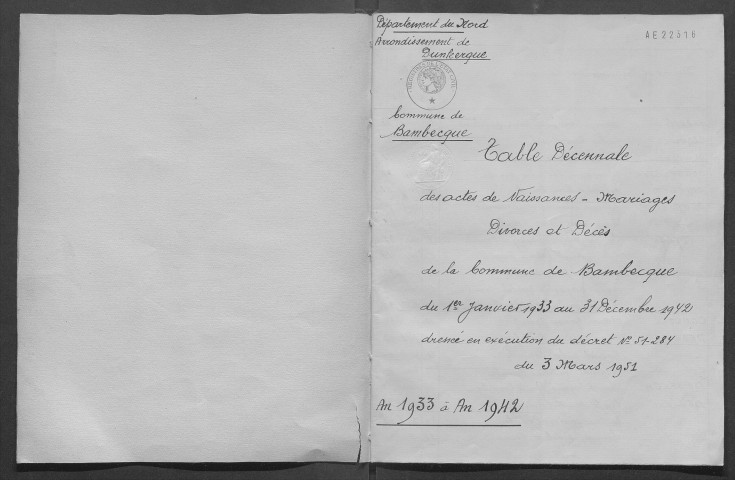 Département du Nord
AE22516
Arrondissement de
Dunkerque
Commune de
Bambecque
Table Décennale
des actes de Naissances - Mariages
Divorces et Décès
de la Commune de Bambecque
du 1er Janvier 1933 au 31 Décembre 1942
dressé en exécution du décret No 51-284
du 3 Mars 1951
An 1933 à An 1942